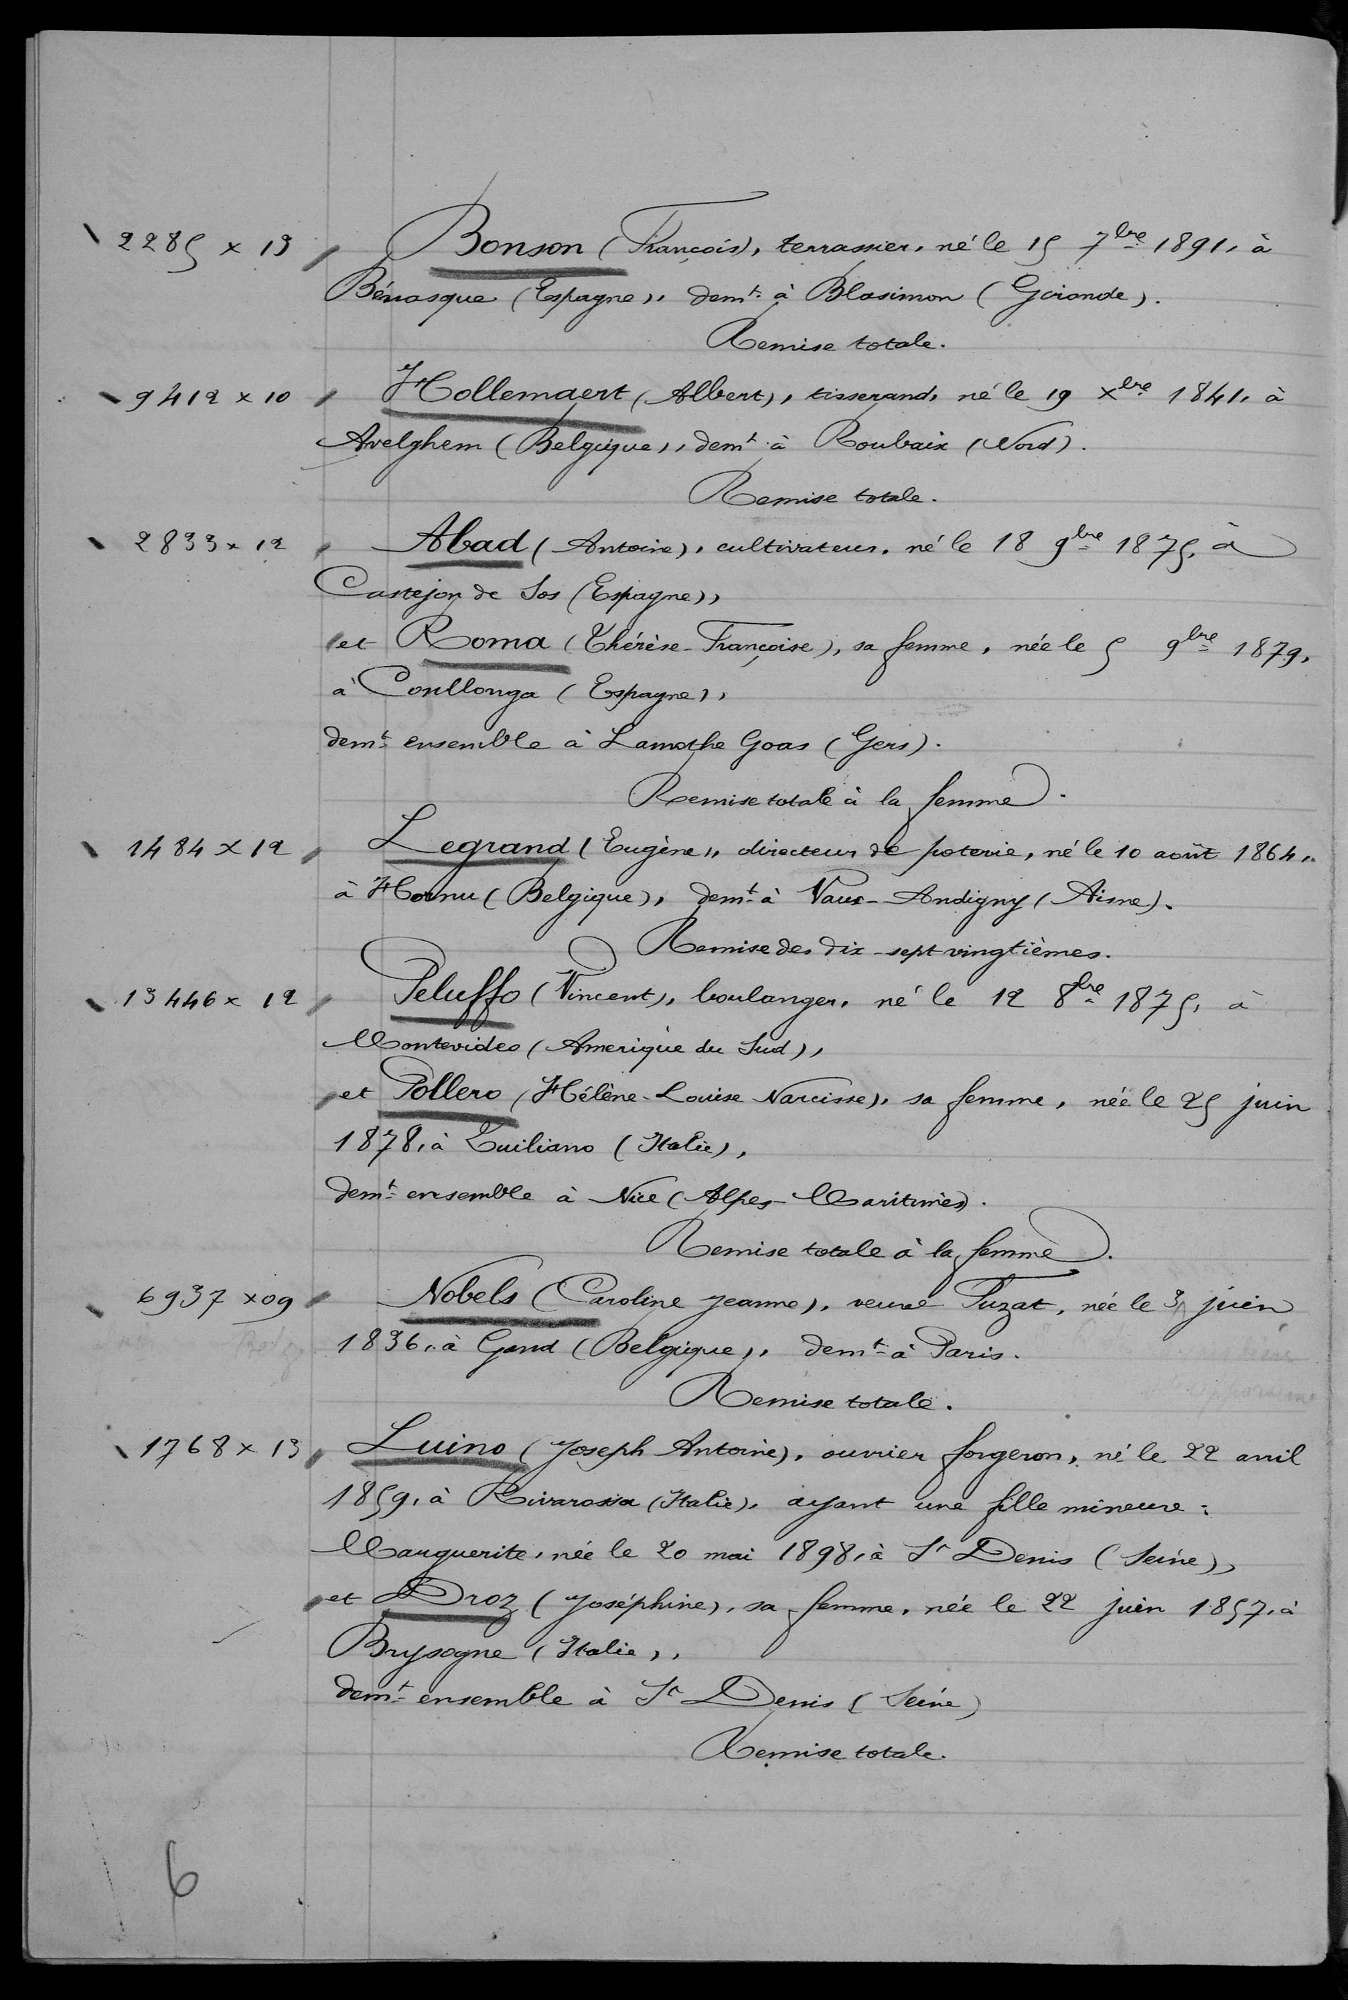 2285 x 13 Bonson (François), terrassier, né le 15 7bre 1891, à
Bénasque (Espagne), demt à Blasimon (Gironde).
Remise totale.
9412 x 10 Hollemaert (Albert), tisserand, né le 19 Xbre 1841, à
Avelghem (Belgique), demt à Roubaix (Nord).
Remise totale.
2833 x 12 Abad (Antoine), cultivateur, né le 18 9bre 1875, à
Castejon de Sos (Espagne),
et Roma (Thérèse-Françoise), sa femme, née le 5 9bre 1879,
à Coullonga (Espagne),
demt ensemble à Lamothe Goas (Gers).
Remise totale à la femme.
1484 x 12 Legrand (Eugène), directeur de poterie, né le 10 août 1864,
à Hornu (Belgique), demt à Vaux-Andigny (Aisne).
Remise des dix-sept vingtièmes.
13446 x 12 Peluffo (Vincent), boulanger, né le 12 8bre 1875, à
Montevideo (Amerique du Sud),
et Pollero (Hélène-Louise Narcisse), sa femme, née le 25 juin
1878, à Tuiliano (Italie),
demt ensemble à Nice (Alpes-Maritimes).
Remise totale à la femme.
6937 x 09 Nobels (Caroline Jeanne), veuve Puzat, née le 3 juin
1836, à Gand (Belgique), demt à Paris.
Remise totale.
1768 x 13 Luino (Joseph Antoine), ouvrier forgeron, né le 22 avril
1859, à Rivarossa (Italie), ayant une fille mineure:
Marguerite, née le 20 mai 1898, à St Denis (Seine),
et Droz (Joséphine), sa femme, née le 22 juin 1857, à
Brysogne (Italie),
demt ensemble à St Denis (Seine)
Remise totale.
6